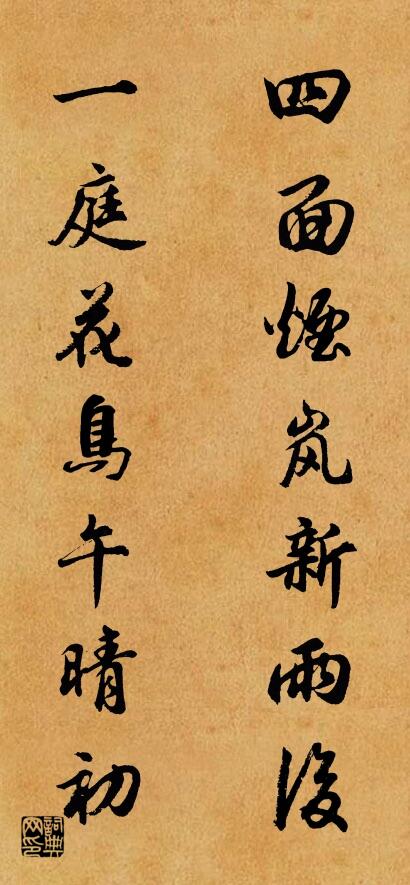 四面煙岚新雨後
一庭花鳥午晴初
詞典网印